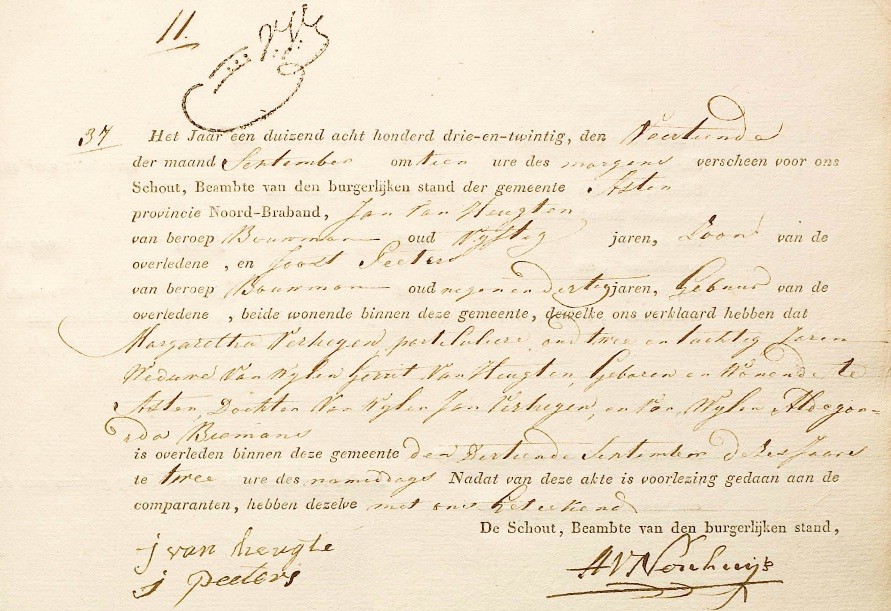 11.
37 Het Jaar een duizend acht honderd drie-en-twintig, den Veertiende
der maand September om tien ure des morgens verscheen voor ons
Schout, Beambte van den burgerlijken stand der gemeente Asten
provincie Noord-Braband, Jan Van Heugten
van beroep Bouwman oud Vyftig jaren, Zoon van de
overledene , en Joost Peeters
van beroep Bouwman oud negenendertig jaren, Gebuur van de
overledene , beide wonende binnen deze gemeente, dewelke ons verklaard hebben dat
Margaretha Verhegen, partikuliere, oud twee en tachtig Jaren
Weduwe Van Wylen Gerrit Van Heugten, Geboren en Wonende te
Asten, Dochter Van Wylen Jan Verhegen, en Van Wylen Aldegon-
da Biemans
is overleden binnen deze gemeente den Dertiende September dezes Jaars
te twee ure des namiddags Nadat van deze akte is voorlezing gedaan aan de
comparanten, hebben dezelve met ons Getekend
De Schout, Beambte van den burgerlijken stand,
j van heugte
j peeters
AVNouhuijs